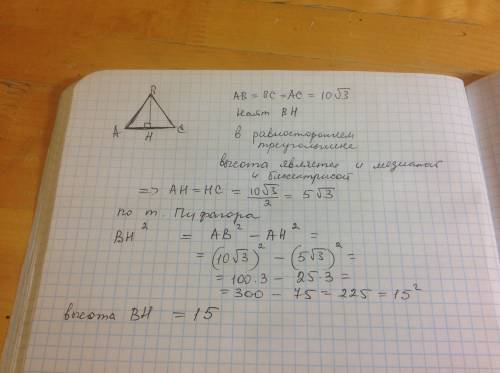 B
A
H
C
AB = BC = AC = 10√3
Найти BH
в равностороннем
треугольнике
высота является и медианой
и биссектрисой
=> AH = HC = 10√3/2 = 5√3
по т. Пифагора
BH² = AB² − AH² =
= (10√3)² − (5√3)² =
= 100·3 − 25·3 =
= 300 − 75 = 225 = 15²
высота BH = 15